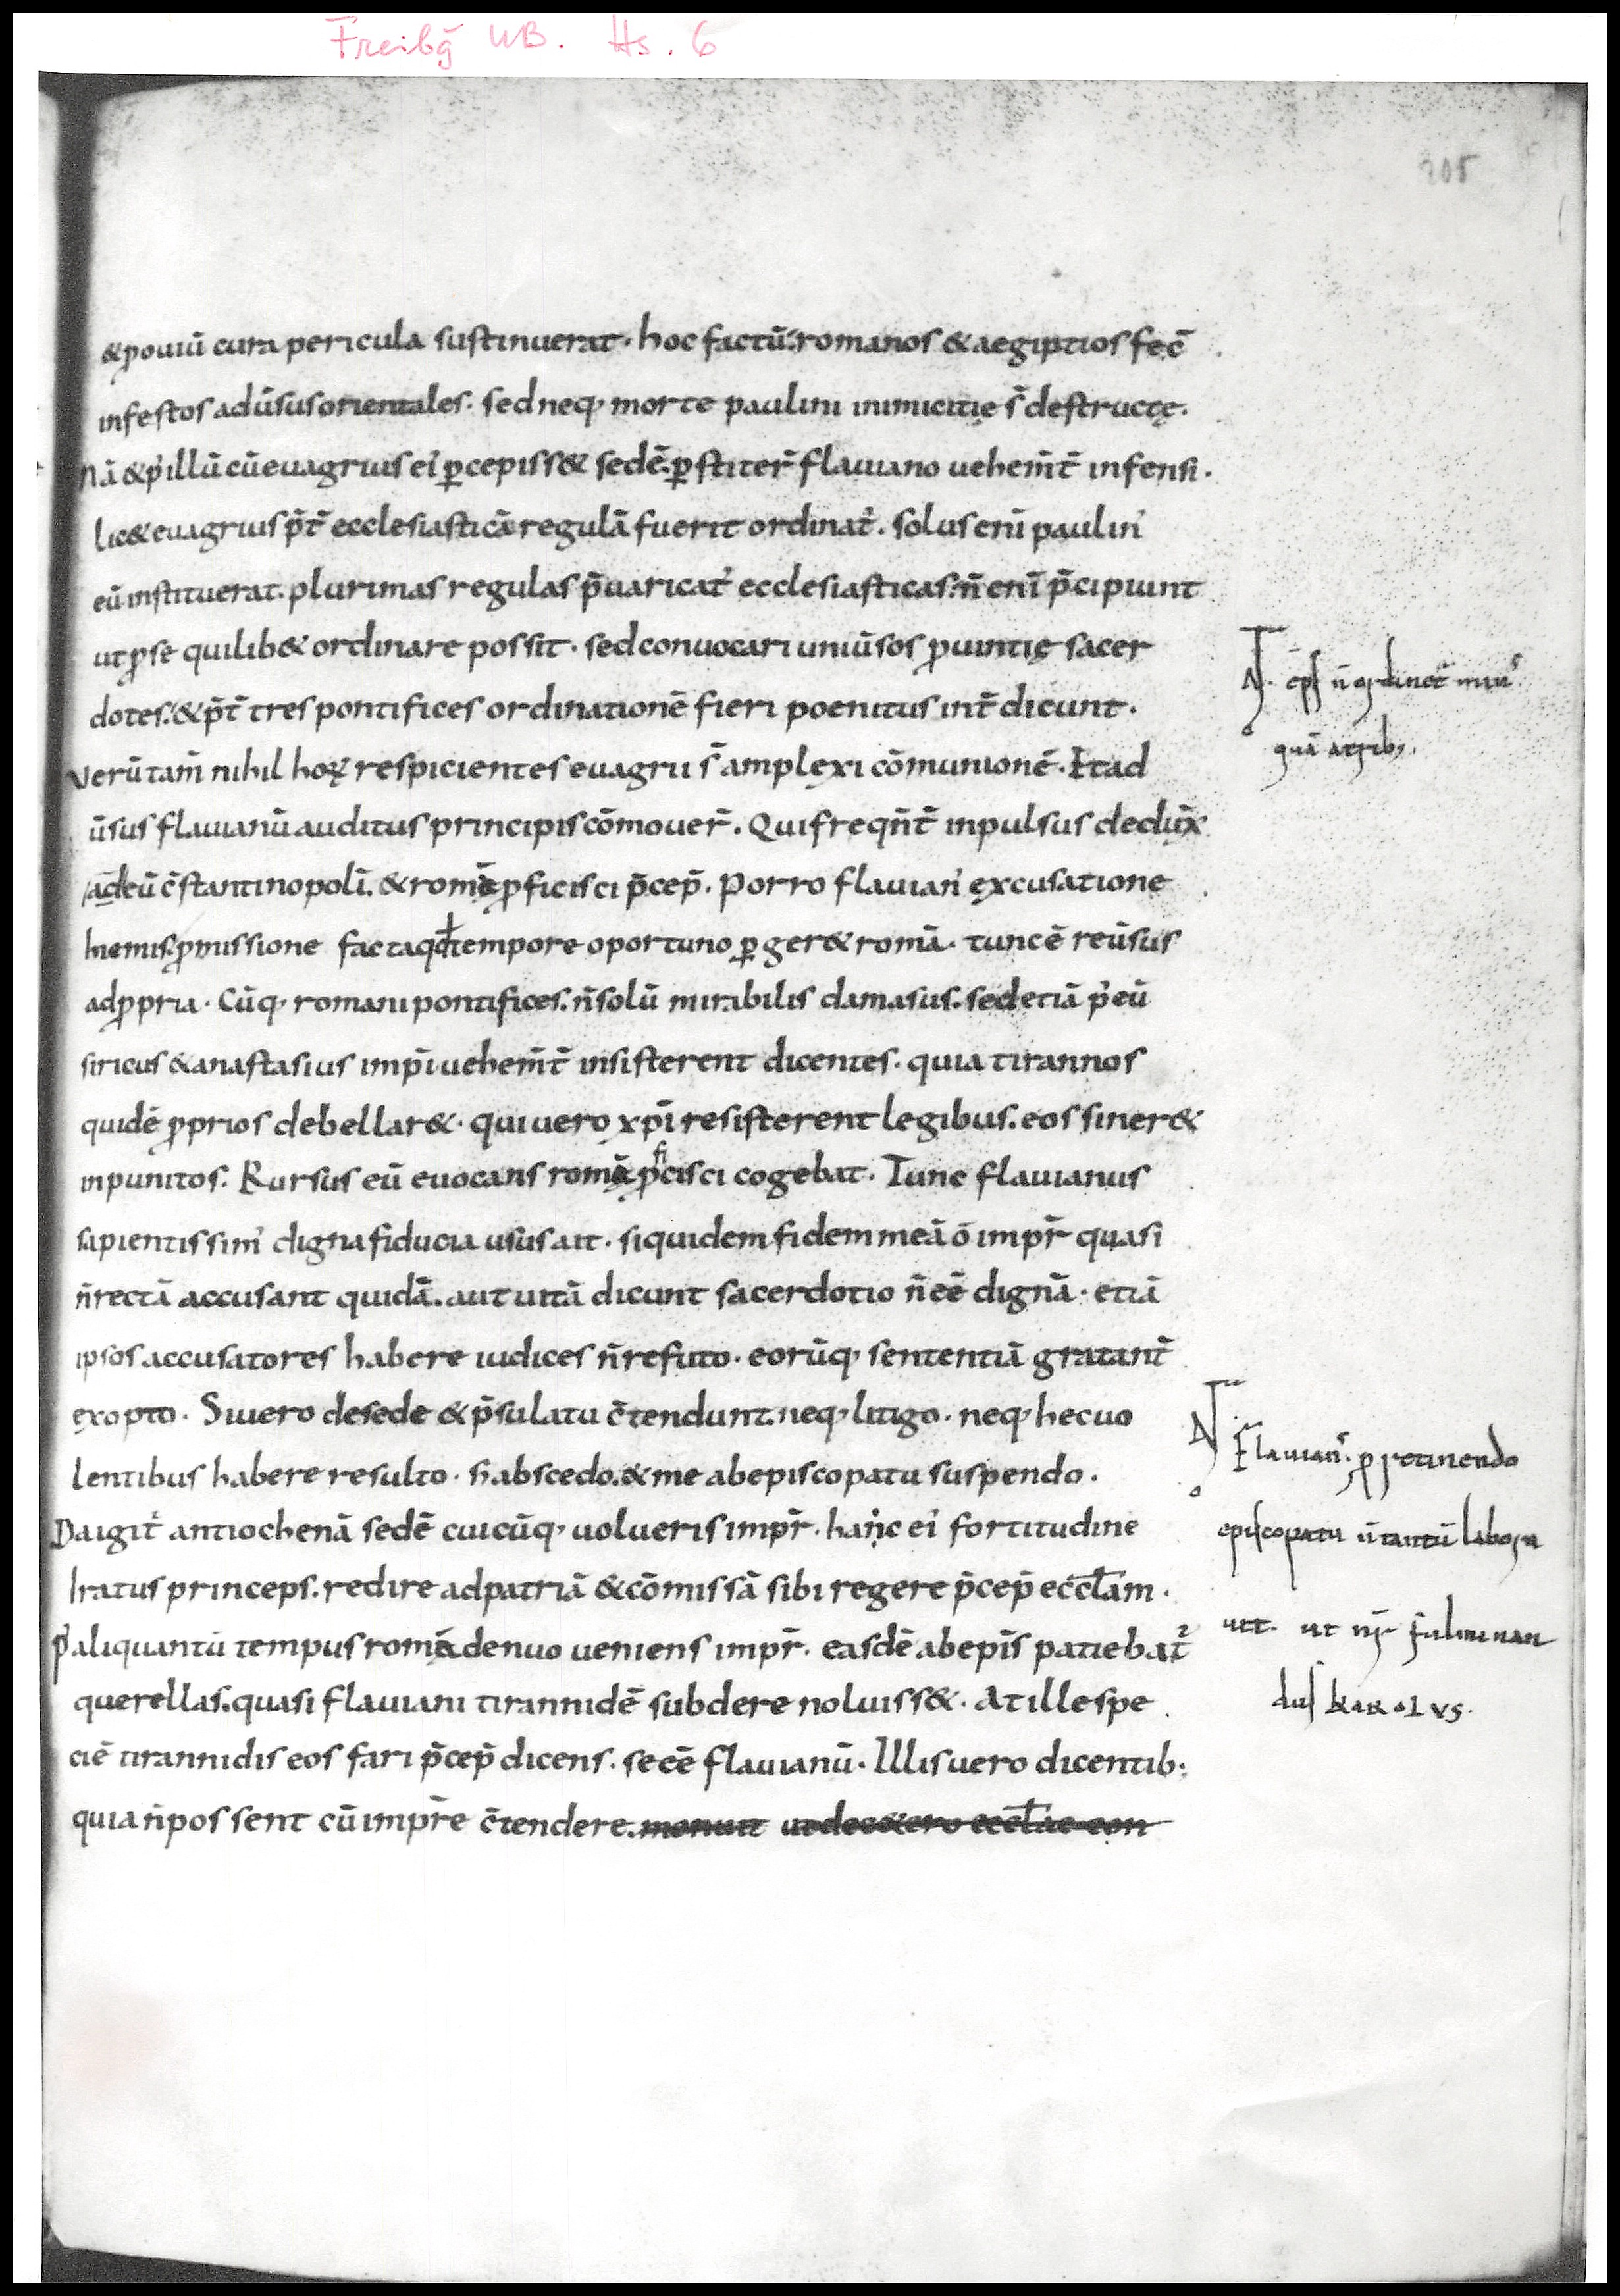 Freibg̃ UB. Hs. 6
205
& ꝓ ouiū cura pericula sustinuerat· hoc factū· romanos & aegiptios fec̄
infestos adūsus orientales· sed neq· morte paulini inimicitię s̄ destructę·
Nā & p' illū cū euagrius ei' ꝑcepiss& sedē· ꝑstiter̄ flauiano uehem̄t̄ infensi·
lic& euagrius p̄t̄ ecclesiasticā regulā fuerit ordinat'· solus enī paulin'
eū instituerat· plurimas regulas p̄uaricat' ecclesiasticas· n̄ enī p̄cipiunt
ut ꝓ se quilib& ordinare possit· sed conuocari uniūsos ꝓuintię sacer
dotes· & p̄t̄ tres pontifices ordinationē fieri poenitus int̄dicunt·
Verūtam̄ nihil hoꝝ respicientes euagrii s̄ amplexi cōmunionē· Et ad
ūsus flauianū auditus principis cōmouer̄· Qui freqn̄t̄ inpulsus dedux̄
ad eū c̄stantinopolī· & romā ꝓficisci p̄cep̄· Porro flauian' excusatione
hiemis· ꝓmissione facta qd tempore oportuno ꝑger& romā· tunc ē reūsus
ad ꝓpria· Cūq· romani pontifices· n̄ solū mirabilis damasus· sed etiā p' eū
siricus & anastasius imp̄i uehem̄t̄ insisterent dicentes· quia tirannos
quidē ꝓprios debellar&· qui uero xp̄i resisterent legibus· eos siner&
inpunitos· Rursus eū euocans romā ꝓficisci cogebat· Tunc flauianus
sapientissim' digna fiducia usus ait· siquidem fidem meā ō imp̄r quasi
n̄ rectā accusant quidā· aut uitā dicunt sacerdotio n̄ eē dignā· etiā
ipsos accusatores habere iudices n̄ refuto· eorūq· sententiā gratant̄
exopto· Si uero de sede & p̄sulatu c̄tendunt· neq· litigo· neq· hec uo
lentibus habere resulto· s; abscedo· & me ab episcopatu suspendo·
Da igit' antiochenā sedē cuicūq· uolueris imp̄r· hanc ei' fortitudine
Iratus princeps· redire ad patriā & cōmissā sibi regere p̄cep̄ eccl̄am·
P' aliquantū tempus romā denuo ueniens imp̄r· easdē ab ep̄is patiebat'
querellas· quasi flauiani tirannidē subdere noluiss&· At ille spe
ciē tirannidis eos fari p̄cep̄ dicens· se eē flauianū· Illis uero dicentib;
quia n̄ possent cū imp̄re c̄tendere·
ep̄s n̄ ordinet' min'
quā a trib;
Flauian' ꝓ retinendo
episcopatu n̄ tantū labora
uit· ut n̄r fulminan
dus KAROLVS·